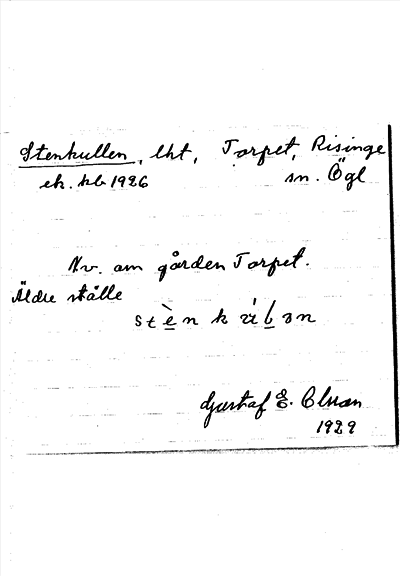 Stenkullen, lht, Torpet, Risinge
ek. kb 1926 sn. Ögl
Nv. om gården Torpet.
Äldre ställe
stènk
Gustaf E. Olsson
1929